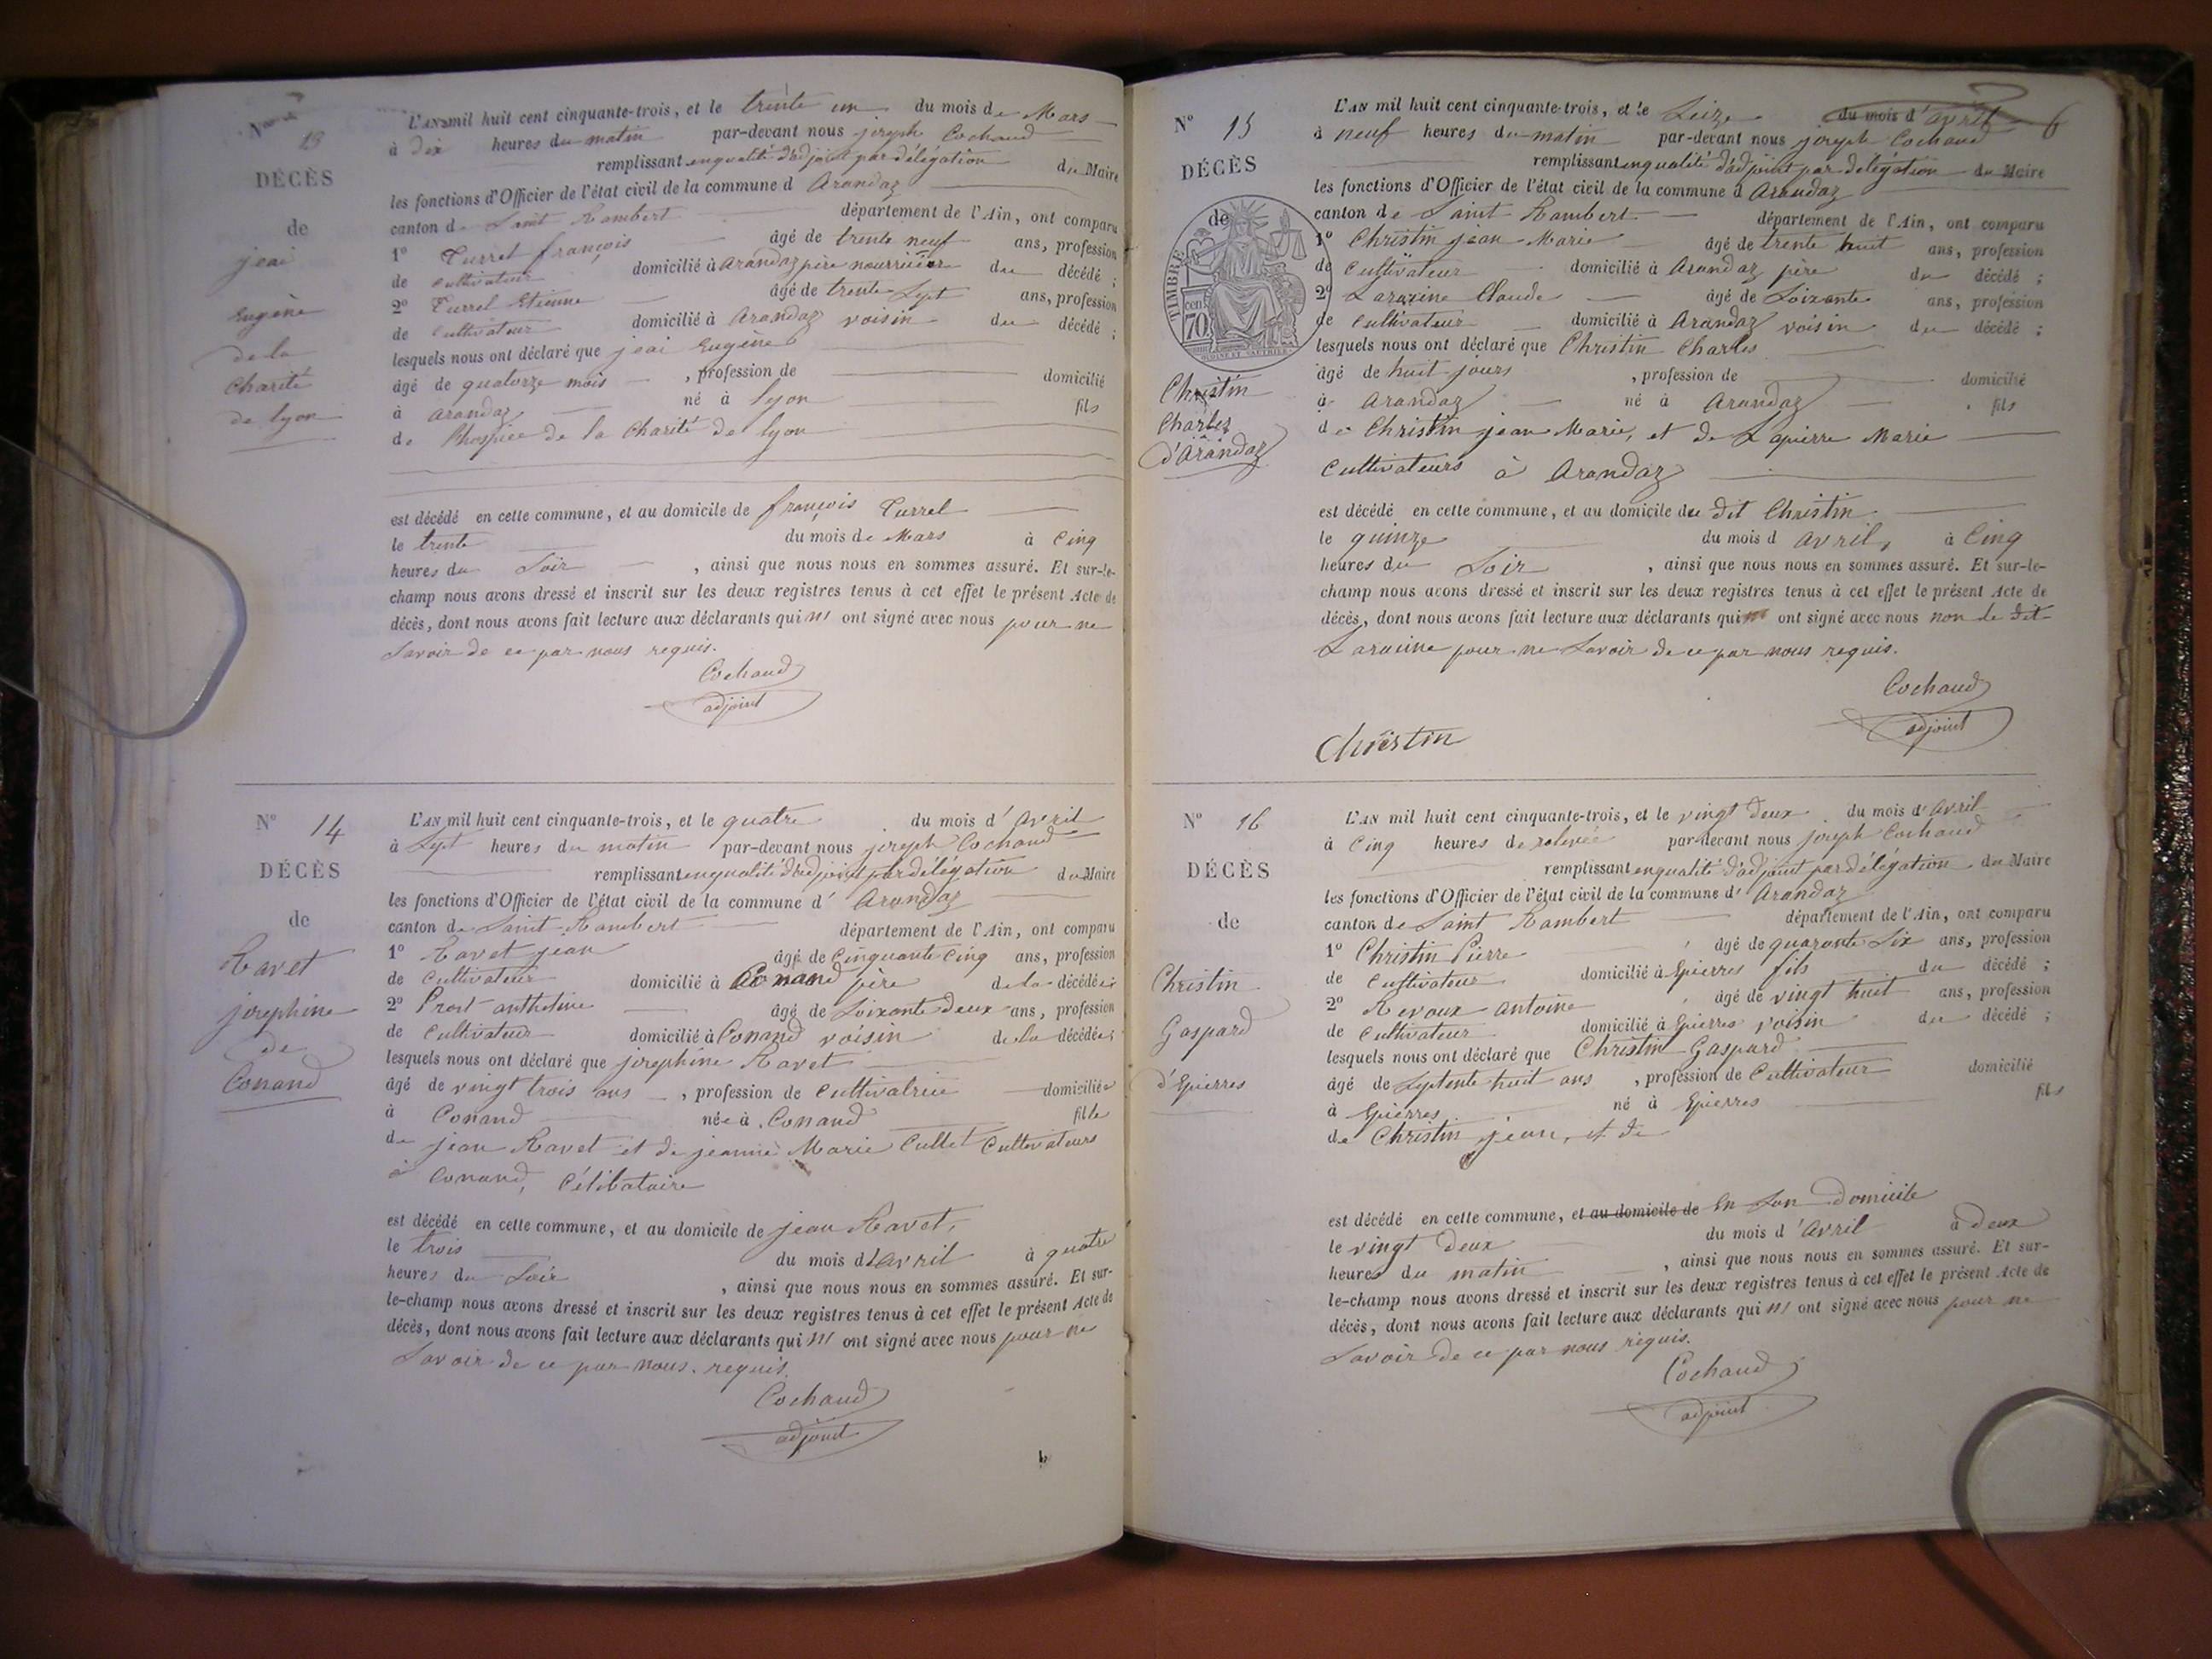 N° 13
DÉCÈS
de
jeai
Eugène
de la
Charité
de lyon
L'AN mil huit cent cinquante-trois, et le trente un du mois de Mars
à dix heures du matin par-devant nous joseph Cochaud
remplissant en qualité d'adjoint par délégation du Maire
les fonctions d'Officier de l'état civil de la commune d Arandaz
canton de Saint Rambert département de l'Ain, ont comparu
1° Turrel françois âgé de trente neuf ans, profession
de cultivateur domicilié à Arandaz père nourricier du décédé ;
2° Turrel Etienne âgé de trente Sept ans, profession
de Cultivateur domicilié à Arandaz voisin du décédé ;
lesquels nous ont déclaré que jeai Eugène
âgé de quatorze mois , profession de domicilié
à Arandaz né à lyon fils
de l'hospice de la Charité de lyon
est décédé en cette commune, et au domicile de françois Turrel
le trente du mois de Mars à Cinq
heures du Soir , ainsi que nous nous en sommes assuré. Et sur-le-
champ nous avons dressé et inscrit sur les deux registres tenus à cet effet le présent Acte de
décès, dont nous avons fait lecture aux déclarants qui n'ont signé avec nous pour ne
Savoir de ce par nous requis.
Cochaud
adjoint
N° 14
DÉCÈS
de
Ravet
josephine
de
Conand
L'AN mil huit cent cinquante-trois, et le quatre du mois d' Avril
à Sept heures du matin par-devant nous joseph Cochaud
remplissant en qualité d'adjoint par délégation du Maire
les fonctions d'Officier de l'état civil de la commune d' Arandaz
canton de Saint Rambert département de l'Ain, ont comparu
1° Ravet jean âgé de Cinquante Cinq ans, profession
de Cultivateur domicilié à Conand père de la décédée ;
2° Prost anthelme âgé de Soixante deux ans, profession
de Cultivateur domicilié à Conand voisin de la décédée ;
lesquels nous ont déclaré que josephine Ravet
âgé de vingt trois ans , profession de Cultivatrice domiciliée
à Conand née à Conand fille
de jean Ravet et de jeanne Marie Cullet Cultivateurs
à Conand, Célibataire
est décédé en cette commune, et au domicile de jean Ravet,
le trois du mois d'Avril à quatre
heures du Soir , ainsi que nous nous en sommes assuré. Et sur-
le-champ nous avons dressé et inscrit sur les deux registres tenus à cet effet le présent Acte de
décès, dont nous avons fait lecture aux déclarants qui n'ont signé avec nous pour ne
Savoir de ce par nous requis.
Cochaud
adjoint
6
N° 15
DÉCÈS
de
TIMBRE
70 cent
Christin
Charles
d'Arandaz
L'AN mil huit cent cinquante-trois, et le Seize du mois d'avril
à neuf heures du matin par-devant nous joseph Cochaud
remplissant en qualité d'adjoint par délégation du Maire
les fonctions d'Officier de l'état civil de la commune d Arandaz
canton de Saint Rambert département de l'Ain, ont comparu
1° Christin jean Marie âgé de trente huit ans, profession
de Cultivateur domicilié à Arandaz père du décédé ;
2° Laracine Claude âgé de Soixante ans, profession
de Cultivateur domicilié à Arandaz voisin du décédé ;
lesquels nous ont déclaré que Christin Charles
âgé de huit jours , profession de domicilié
à Arandaz né à Arandaz fils
de Christin jean Marie, et de Lapierre Marie
Cultivateurs à Arandaz
est décédé en cette commune, et au domicile du dit Christin
le quinze du mois d avril, à Cinq
heures du Soir , ainsi que nous nous en sommes assuré. Et sur-le-
champ nous avons dressé et inscrit sur les deux registres tenus à cet effet le présent Acte de
décès, dont nous avons fait lecture aux déclarants qui ont signé avec nous non le dit
Laracine pour ne Savoir de ce par nous requis.
Cochaud
adjoint
Christin
N° 16
DÉCÈS
de
Christin
Gaspard
d'Epierres
L'AN mil huit cent cinquante-trois, et le vingt deux du mois d'Avril
à Cinq heures de relevée par-devant nous joseph Cochaud
remplissant en qualité d'adjoint par délégation du Maire
les fonctions d'Officier de l'état civil de la commune d' Arandaz
canton de Saint Rambert département de l'Ain, ont comparu
1° Christin Pierre âgé de quarante Six ans, profession
de Cultivateur domicilié à Epierres fils du décédé ;
2° Revoux antoine âgé de vingt huit ans, profession
de Cultivateur domicilié à Epierres voisin du décédé ;
lesquels nous ont déclaré que Christin Gaspard
âgé de Septente huit ans , profession de Cultivateur domicilié
à Epierres né à Epierres fils
de Christin jean, et de
est décédé en cette commune, et au domicile de En Son Domicile
le vingt deux du mois d'Avril à deux
heures du matin , ainsi que nous nous en sommes assuré. Et sur-
le-champ nous avons dressé et inscrit sur les deux registres tenus à cet effet le présent Acte de
décès, dont nous avons fait lecture aux déclarants qui n'ont signé avec nous pour ne
Savoir de ce par nous requis.
Cochaud
adjoint